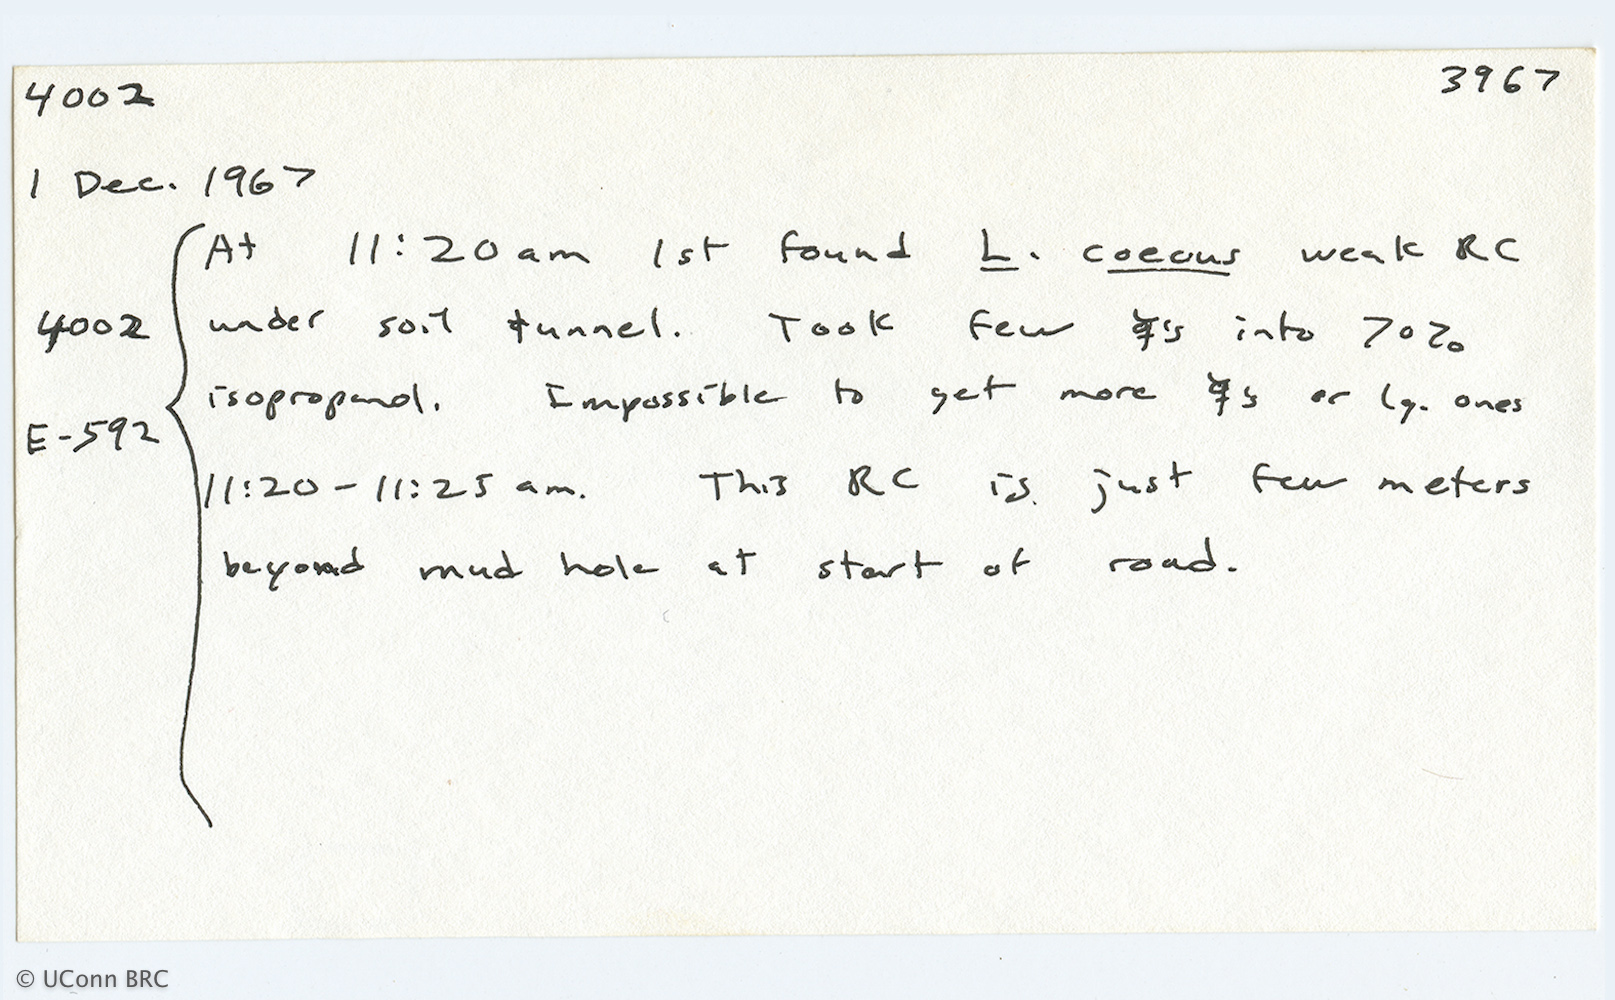 4002 3967
1 Dec. 1967
At 11:20 am 1st found L. coecus weak RC
4002 under soil tunnel. Took few ☿'s into 70%
isopropanol. Impossible to get more ☿'s or lg. ones
E-592
11:20-11:25 am. This RC is just few meters
beyond mud hole at start of road.
© UConn BRC